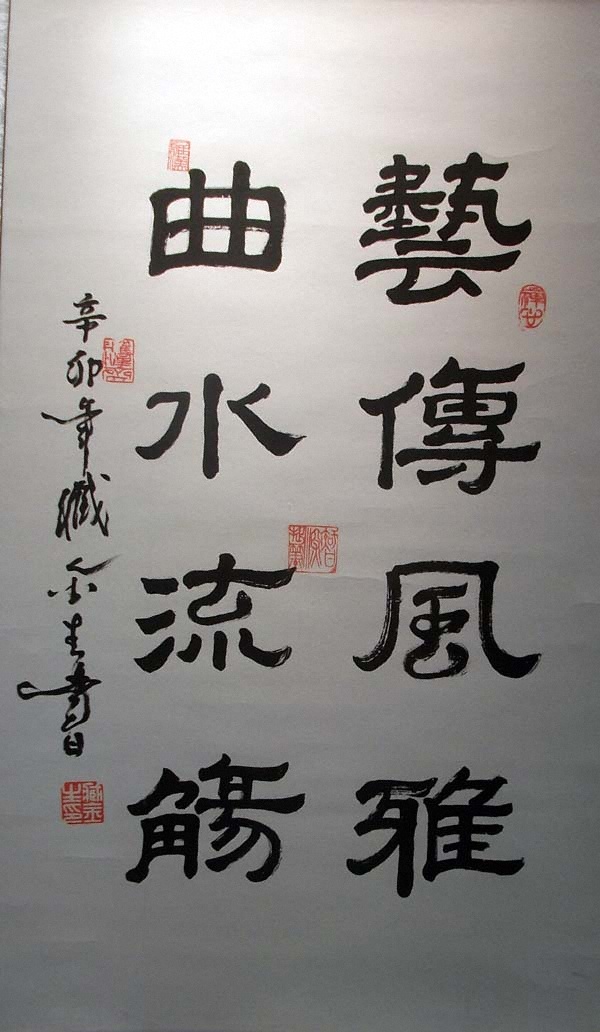 藝傳風雅
曲水流觴
辛卯年臧金生書